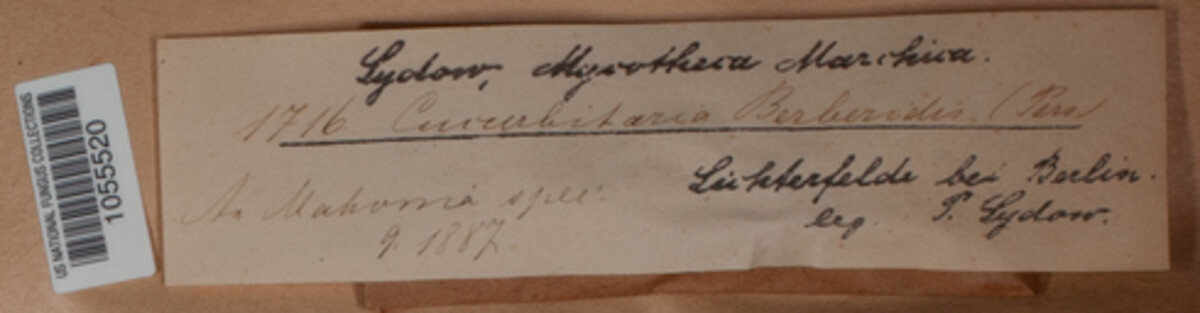 US NATIONAL FUNGUS COLLECTIONS
1055520
Sydow, Mycotheca Marchica.
1716. Cucurbitaria Berberidis. (Pers)
An Mahonia spec:
9. 1887.
Lichterfelde bei Berlin.
leg. P. Sydow.